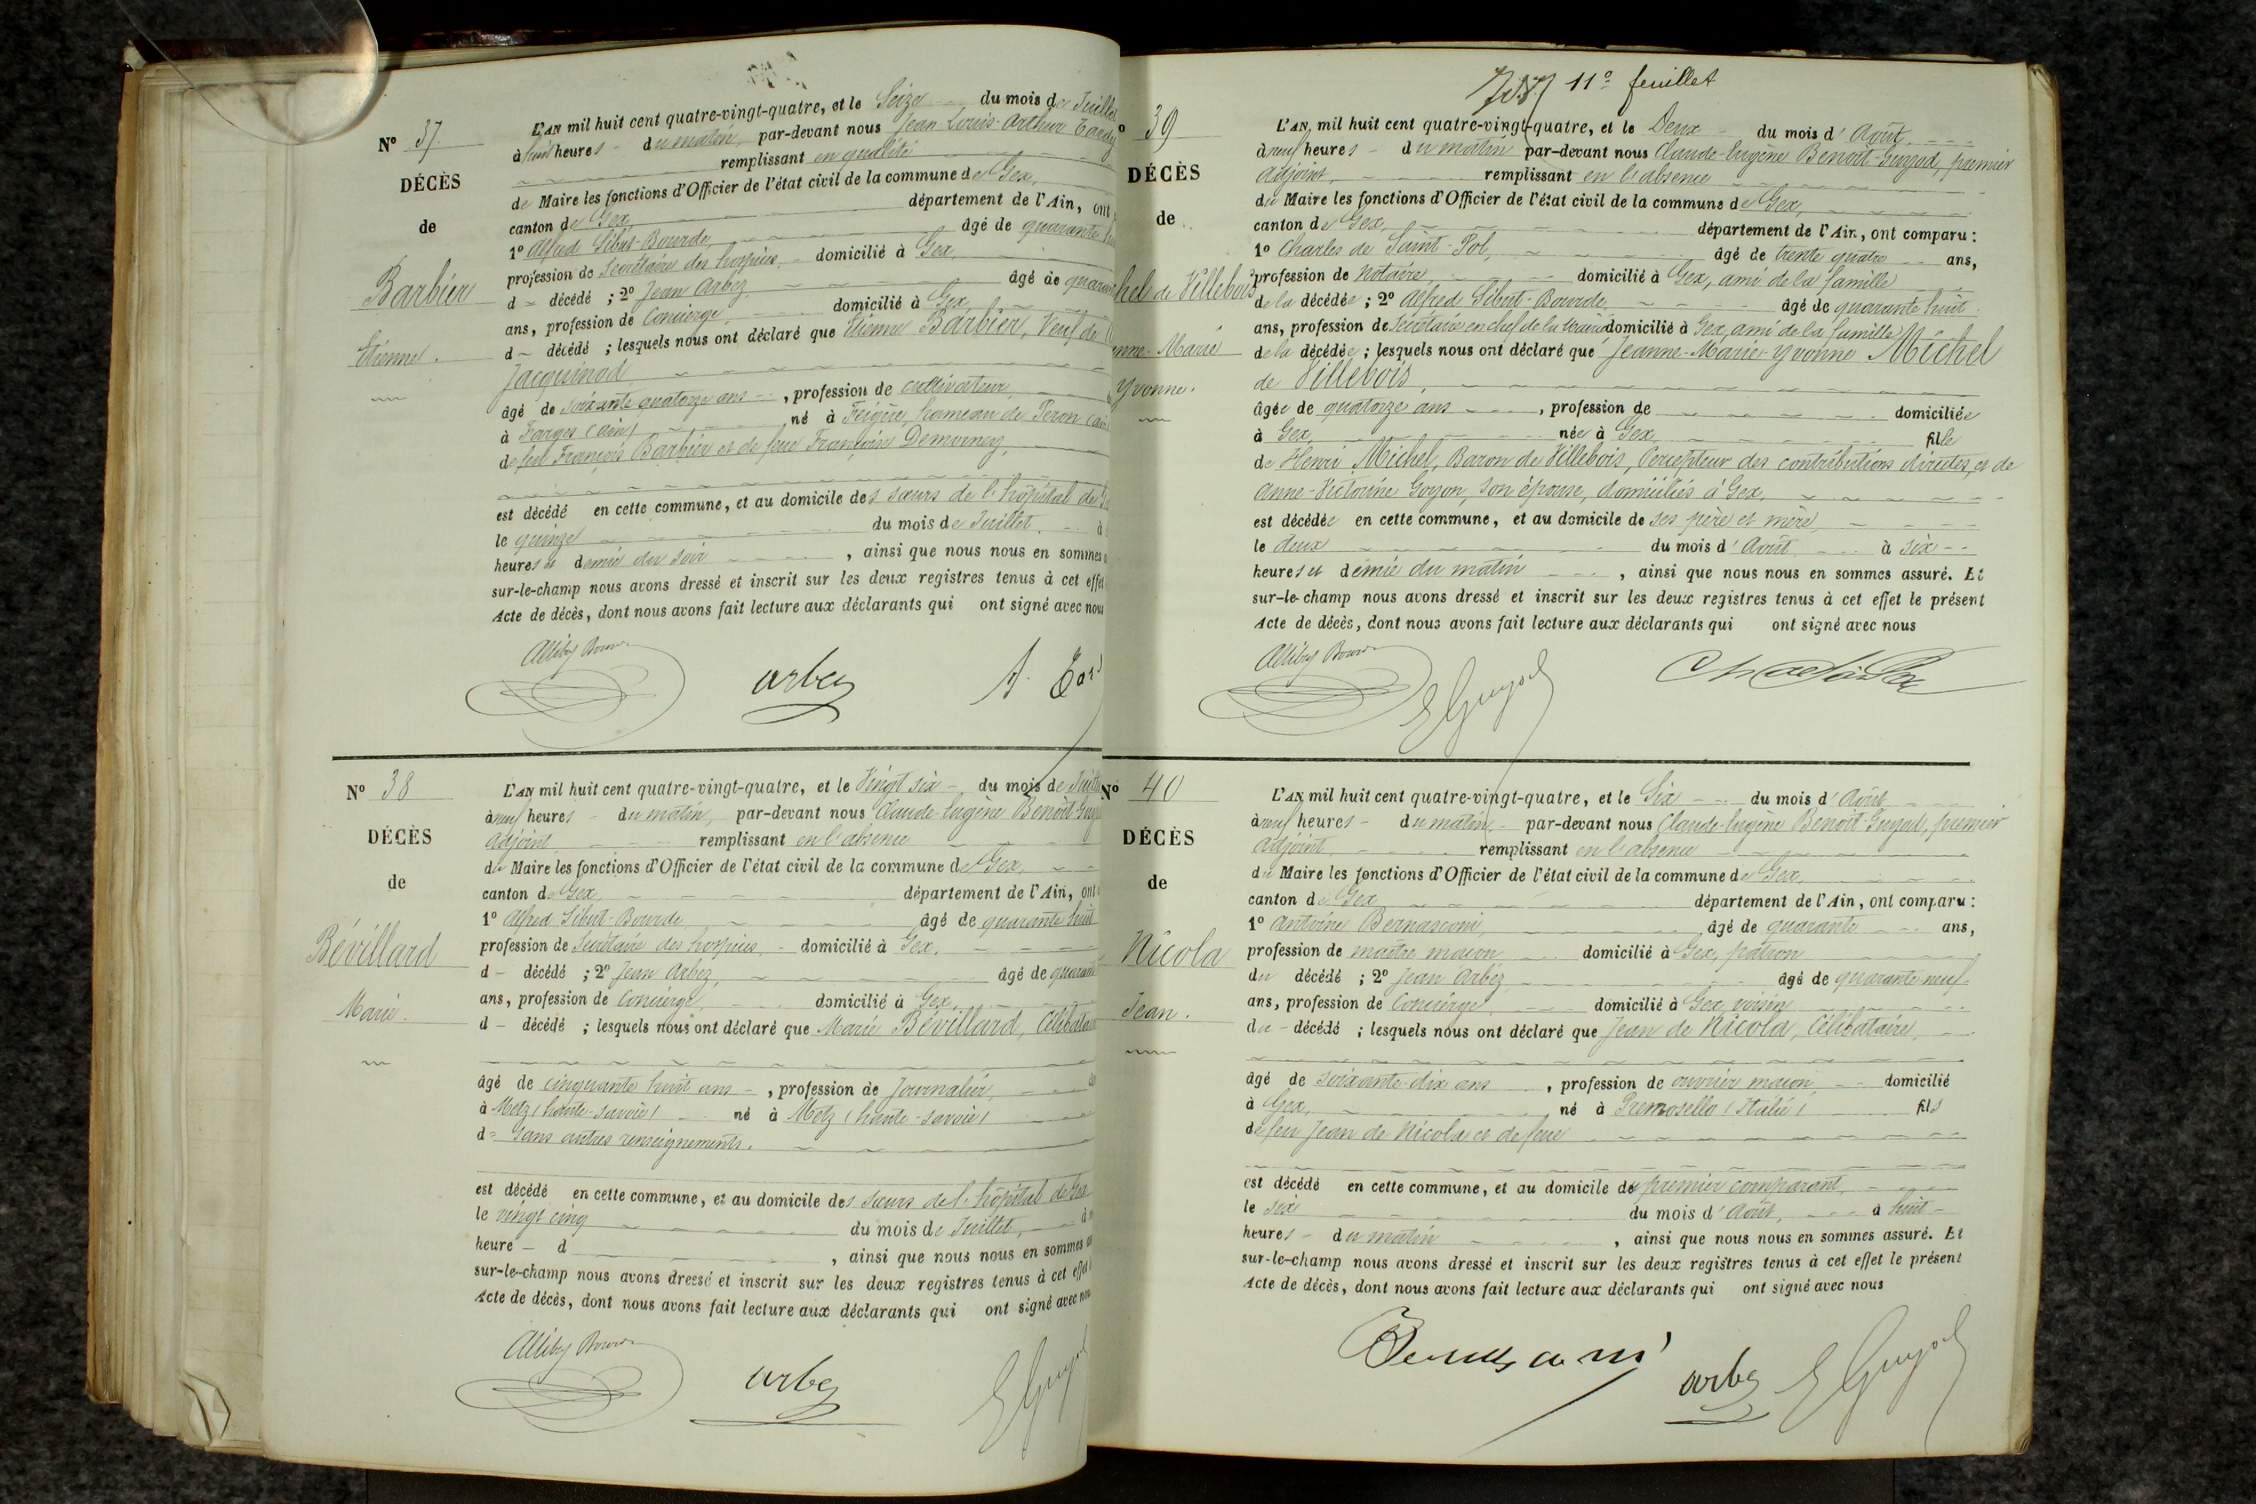 N° 37.
DÉCÈS
de
Barbier
Etienne.
L'AN mil huit cent quatre-vingt-quatre, et le Seize du mois de Juillet
à huit heures du matin, par-devant nous Jean Louis-Arthur Tardy
remplissant en qualité
de Maire les fonctions d'Officier de l'état civil de la commune de Gex,
canton de Gex, département de l'Ain, ont
1° Alfred Sibut-Bourde, âgé de quarante huit
profession de Secrétaire des hospices, domicilié à Gex,
d décédé ; 2° Jean Arbez, âgé de quarante
ans, profession de Concierge, domicilié à Gex,
d décédé ; lesquels nous ont déclaré que Etienne Barbier, Veuf de
Jacquinod,
âgé de soixante quatorze ans, profession de cultivateur,
à Farges (Ain) né à Feigère, hameau de Peron (Ain
de feu François Barbier et de feue Françoise Demornex,
est décédé en cette commune, et au domicile des sœurs de l'hôpital de
le quinze du mois de Juillet, à
heures et demie du soir, ainsi que nous nous en sommes
sur-le-champ nous avons dressé et inscrit sur les deux registres tenus à cet effet
Acte de décès, dont nous avons fait lecture aux déclarants qui ont signé avec nous
arbez
N° 38
DÉCÈS
de
Bévillard
Marie.
L'AN mil huit cent quatre-vingt-quatre, et le Vingt six du mois de Juillet
à neuf heures du matin, par-devant nous Claude-Eugène Benoît-Guyod
adjoint, remplissant en l'absence
du Maire les fonctions d'Officier de l'état civil de la commune de Gex,
canton de Gex, département de l'Ain, ont
1° Alfred Sibut-Bourde, âgé de quarante huit
profession de Secrétaire des hospices, domicilié à Gex,
d décédé ; 2° Jean Arbez, âgé de quarante
ans, profession de Concierge, domicilié à Gex,
d décédé ; lesquels nous ont déclaré que Marie Bévillard, Célibataire
âgé de cinquante huit ans, profession de Journalier,
à Metz (haute-savoie) né à Metz (haute-savoie)
d sans autres renseignements.
est décédé en cette commune, et au domicile des sœurs de l'hôpital de Gex
le vingt cinq du mois de Juillet, à
heure d, ainsi que nous nous en sommes
sur-le-champ nous avons dressé et inscrit sur les deux registres tenus à cet effet
Acte de décès, dont nous avons fait lecture aux déclarants qui ont signé avec nous
arbez
EGuyod
11° feuillet
39
DÉCÈS
de
hel de Villebois
nne-Marie
Yvonne.
L'AN mil huit cent quatre-vingt-quatre, et le Deux du mois d'Août,
à neuf heures du matin par-devant nous Claude-Eugène Benoît-Guyod, premier
adjoint, remplissant en l'absence
du Maire les fonctions d'Officier de l'état civil de la commune de Gex,
canton de Gex, département de l'Ain, ont comparu :
1° Charles de Saint-Pol, âgé de trente quatre ans,
profession de Notaire, domicilié à Gex, ami de la famille
de la décédée ; 2° Alfred Sibut-Bourde, âgé de quarante huit
ans, profession de Secrétaire en chef de la Mairie domicilié à Gex, ami de la famille
de la décédée ; lesquels nous ont déclaré que Jeanne-Marie-Yvonne Michel
de Villebois,
âgée de quatorze ans, profession de domiciliée
à Gex, née à Gex, fille
de Henri Michel, Baron de Villebois, Percepteur des contributions directes, et de
Anne-Victorine Goyon, son épouse, domiciliés à Gex,
est décédée en cette commune, et au domicile de ses père et mère,
le deux du mois d'Août à six
heures et demie du matin, ainsi que nous nous en sommes assuré. Et
sur-le-champ nous avons dressé et inscrit sur les deux registres tenus à cet effet le présent
Acte de décès, dont nous avons fait lecture aux déclarants qui ont signé avec nous
EGuyod
N° 40
DÉCÈS
de
Nicola
Jean.
L'AN mil huit cent quatre-vingt-quatre, et le Six du mois d'Août
à neuf heures du matin, par-devant nous Claude-Eugène Benoît-Guyod, premier
adjoint remplissant en l'absence
du Maire les fonctions d'Officier de l'état civil de la commune de Gex,
canton de Gex département de l'Ain, ont comparu :
1° Antoine Bernasconi, âgé de quarante ans,
profession de maître maçon, domicilié à Gex, patron
du décédé ; 2° Jean Arbez âgé de quarante-neuf
ans, profession de Concierge domicilié à Gex, voisin
du décédé ; lesquels nous ont déclaré que Jean de Nicola, Célibataire,
âgé de soixante-dix ans, profession de ouvrier maçon domicilié
à Gex, né à Premosello (Italie) fils
de feu Jean de Nicola et de feue
est décédé en cette commune, et au domicile du premier comparant,
le six du mois d'Août, à huit
heures du matin, ainsi que nous nous en sommes assuré. Et
sur-le-champ nous avons dressé et inscrit sur les deux registres tenus à cet effet le présent
Acte de décès, dont nous avons fait lecture aux déclarants qui ont signé avec nous
Bernasconi
arbez
EGuyod